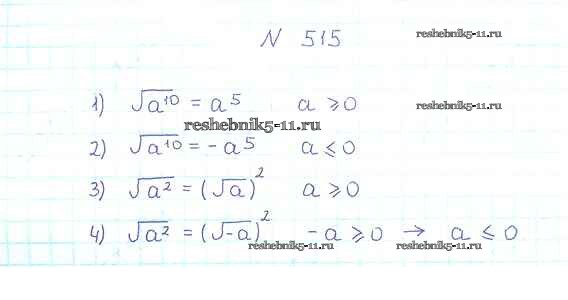 N 515 reshebnik5-11.ru
1) √a¹⁰ = a⁵ a ⩾ 0 reshebnik5-11.ru
reshebnik5-11.ru
2) √a¹⁰ = - a⁵ a ⩽ 0
3) √a² = (√a)² a ⩾ 0
4) √a² = (√-a)² -a ⩾ 0 → a ⩽ 0
reshebnik5-11.ru reshebnik5-11.ru